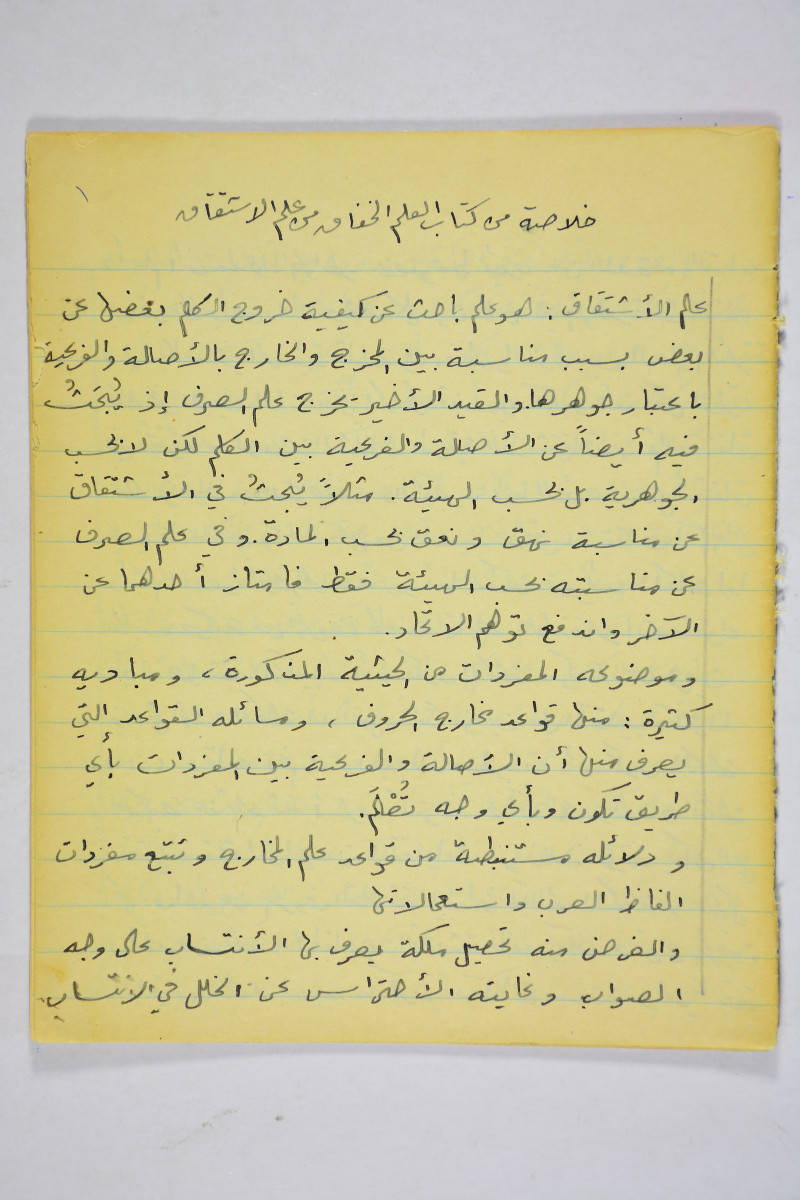 ١
خلاصة من كتاب العلم الخفاق من علم الاشتقاق
علم الأشتقاق : هو علم باحث عن كيفية خروج الكلم بعضها عن
بعض بسبب مناسبة بين المخرج والخارج بالأصالة والفرعية
باعتبار جوهرها. والقيد الأخير يخرج علم الصرف إذ يُبحَثُ
فيه أيضاً عن الأصالة والفرعية بين الكلم لكن لا بحسب
الجوهرية بل بحسب الهيئة. مثلاً يُبحثُ في الأشتقاق
عن مناسبة نهق ونعق بحسب المادة. وفي علم الصرف
عن مناسبته بحسب الهيئة فقط فامتاز أحدهما عن
الآخر واندفع توهم الاتحاد.
وموضوعه المفردات من الحيثية المذكورة، ومباديه
كثيرة : منها قواعد مخارج الحروف، ومسائله القواعد التي
يعرف منها أن الأصالة والفرعية بين المفردات بأي
طريق تكون وبأي وجه تُعْلَم.
ودلائله مستنبطة من قواعد علم المخارج وتتبع مفردات
الفاظ العرب واستعمالاتها
والغرض منه تحصيل ملكة يعرف بها الأنتساب على وجه
الصواب وغايته الأحتراس عن الخلل في الانتساب.